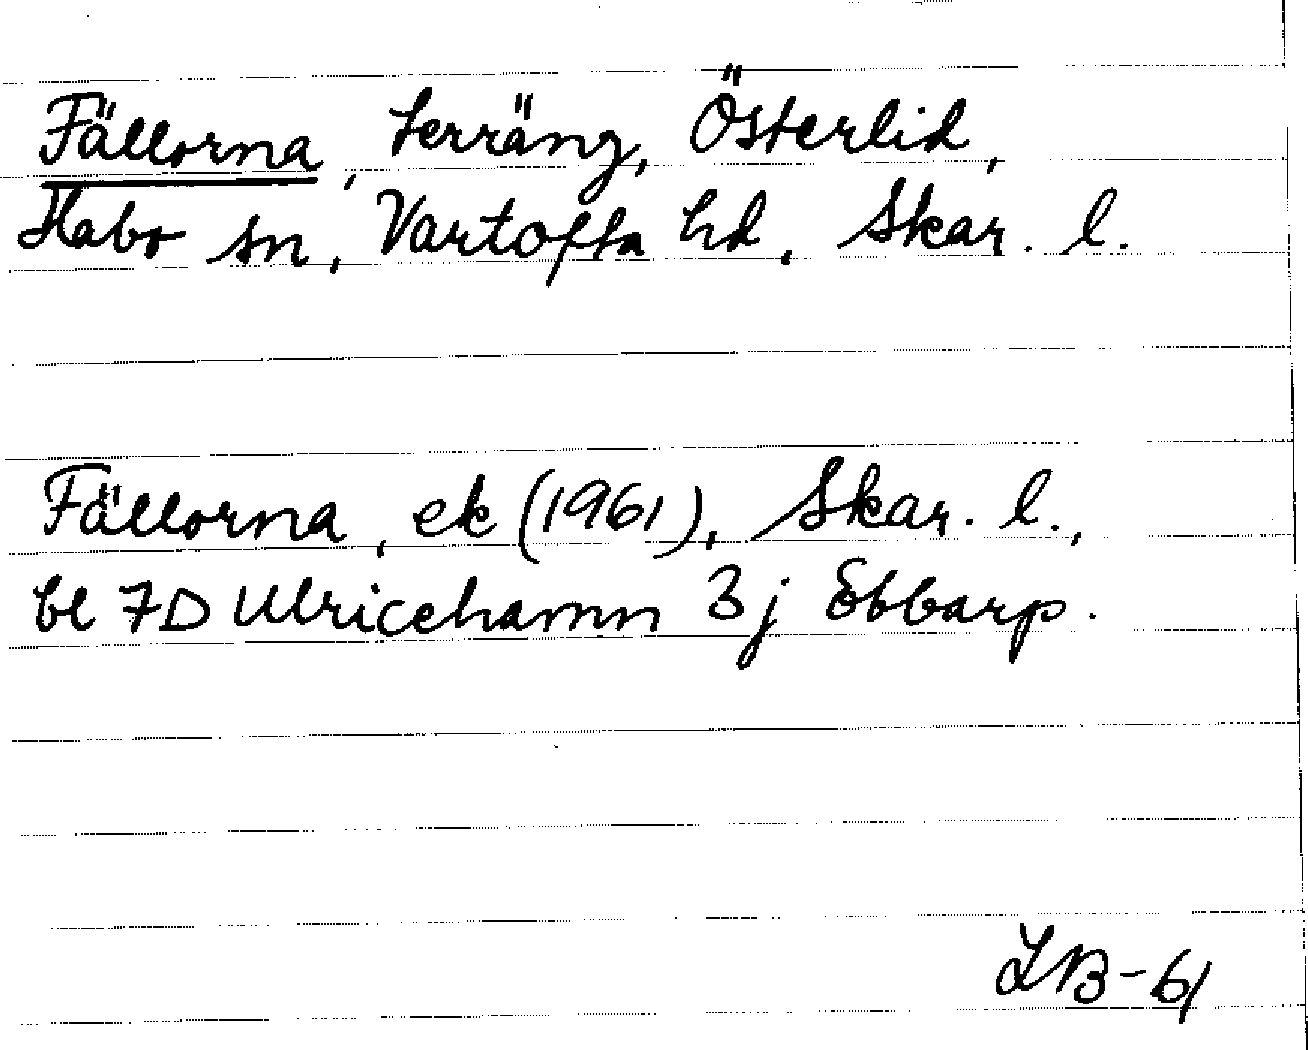 Fällorna, terräng, Österlid,
Habo sn, Vartofta hd, Skar. l.
Fällorna, ek (1961), Skar. l.,
bl 7D Ulricehamn 3j Ebbarp.
LB-61